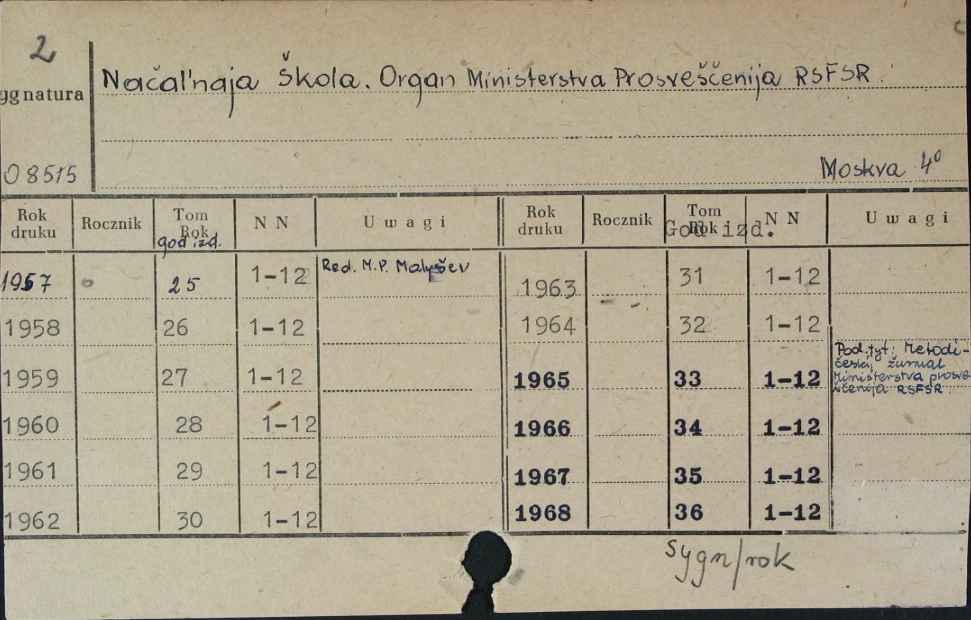 2
ygnatura
Načal'naja Škola. Organ Ministerstva Prosveščenija RSFSR.
08515
Moskva 4°
Rok druku Rocznik Tom Rok god izd. N N Uwagi Rok druku Rocznik Tom Rok God izd. N N Uwagi
1957 25 1-12 Red. M.P. Malyšev 1963 31 1-12
1958 26 1-12 1964 32 1-12
1959 27 1-12 1965 33 1-12 Pod.tyt: Metodi-
česki, žurnal
Ministerstva prosve-
ščenija RSFSR
1960 28 1-12 1966 34 1-12
1961 29 1-12 1967 35 1-12
1962 30 1-12 1968 36 1-12
Sygn/rok